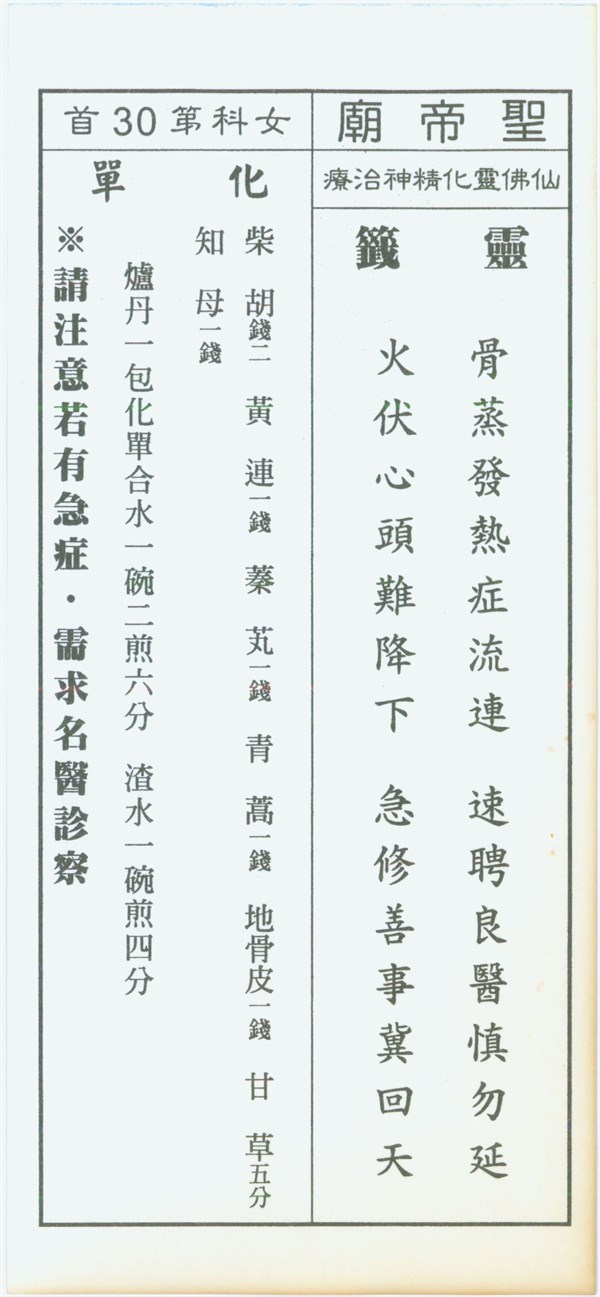 聖帝廟
仙佛靈化精神治療
靈籤
骨蒸發熱症流連 速聘良醫慎勿延
火伏心頭難降下 急修善事冀回天
女科第30首
化單
柴胡二錢 黃連一錢 蓁芄一錢 青蒿一錢 地骨皮一錢 甘草五分
知母一錢
爐丹一包化單合水一碗二煎六分 渣水一碗煎四分
※請注意若有急症・需求名醫診察